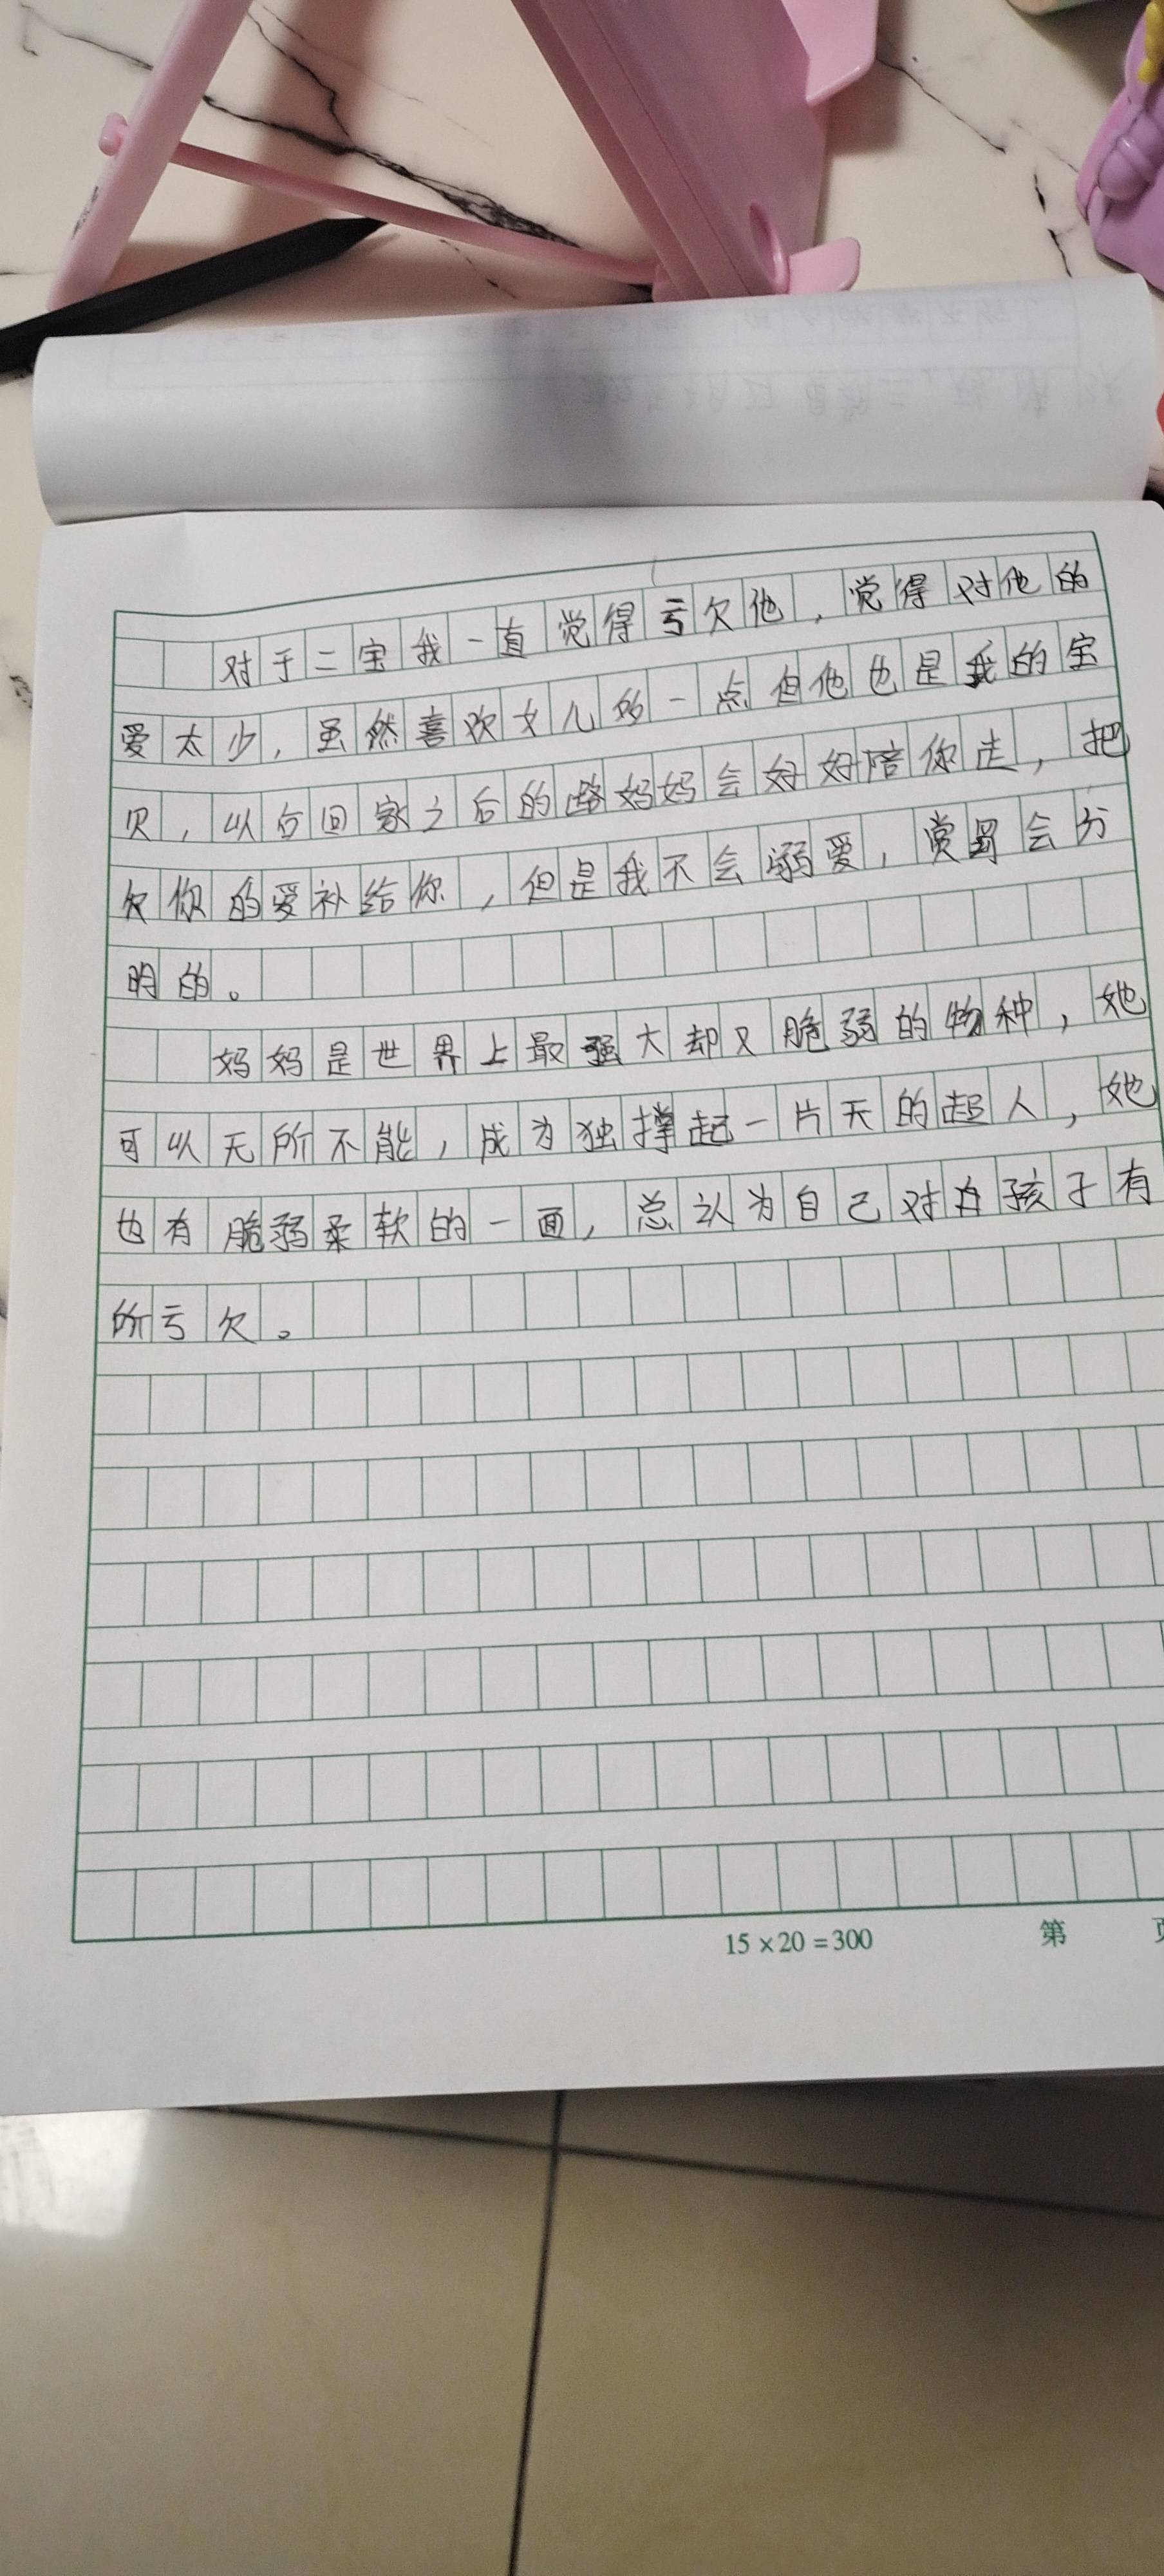 对于二宝我一直觉得亏欠他，觉得对他的
爱太少，虽然喜欢女儿多一点但他也是我的宝
贝，以后回家之后的路妈妈会好好陪你走，把
欠你的爱补给你，但是我不会溺爱，赏罚会分
明的。
妈妈是世界上最强大却又脆弱的物种，她
可以无所不能，成为独撑起一片天的超人，她
也有脆弱柔软的一面，总认为自己对孩子有
所亏欠。
15×20=300
第